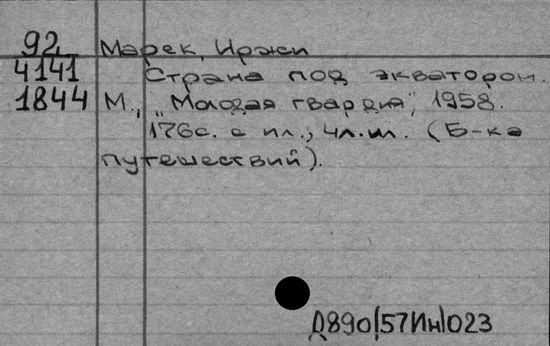 92 Марек, Иржи
4141 Страна под экватором.
1844 М., "Молодая гвардия", 1958.
176с. с ил.; 4л. ил. (Б-ка
путешествий).
Д890|57Ин|023